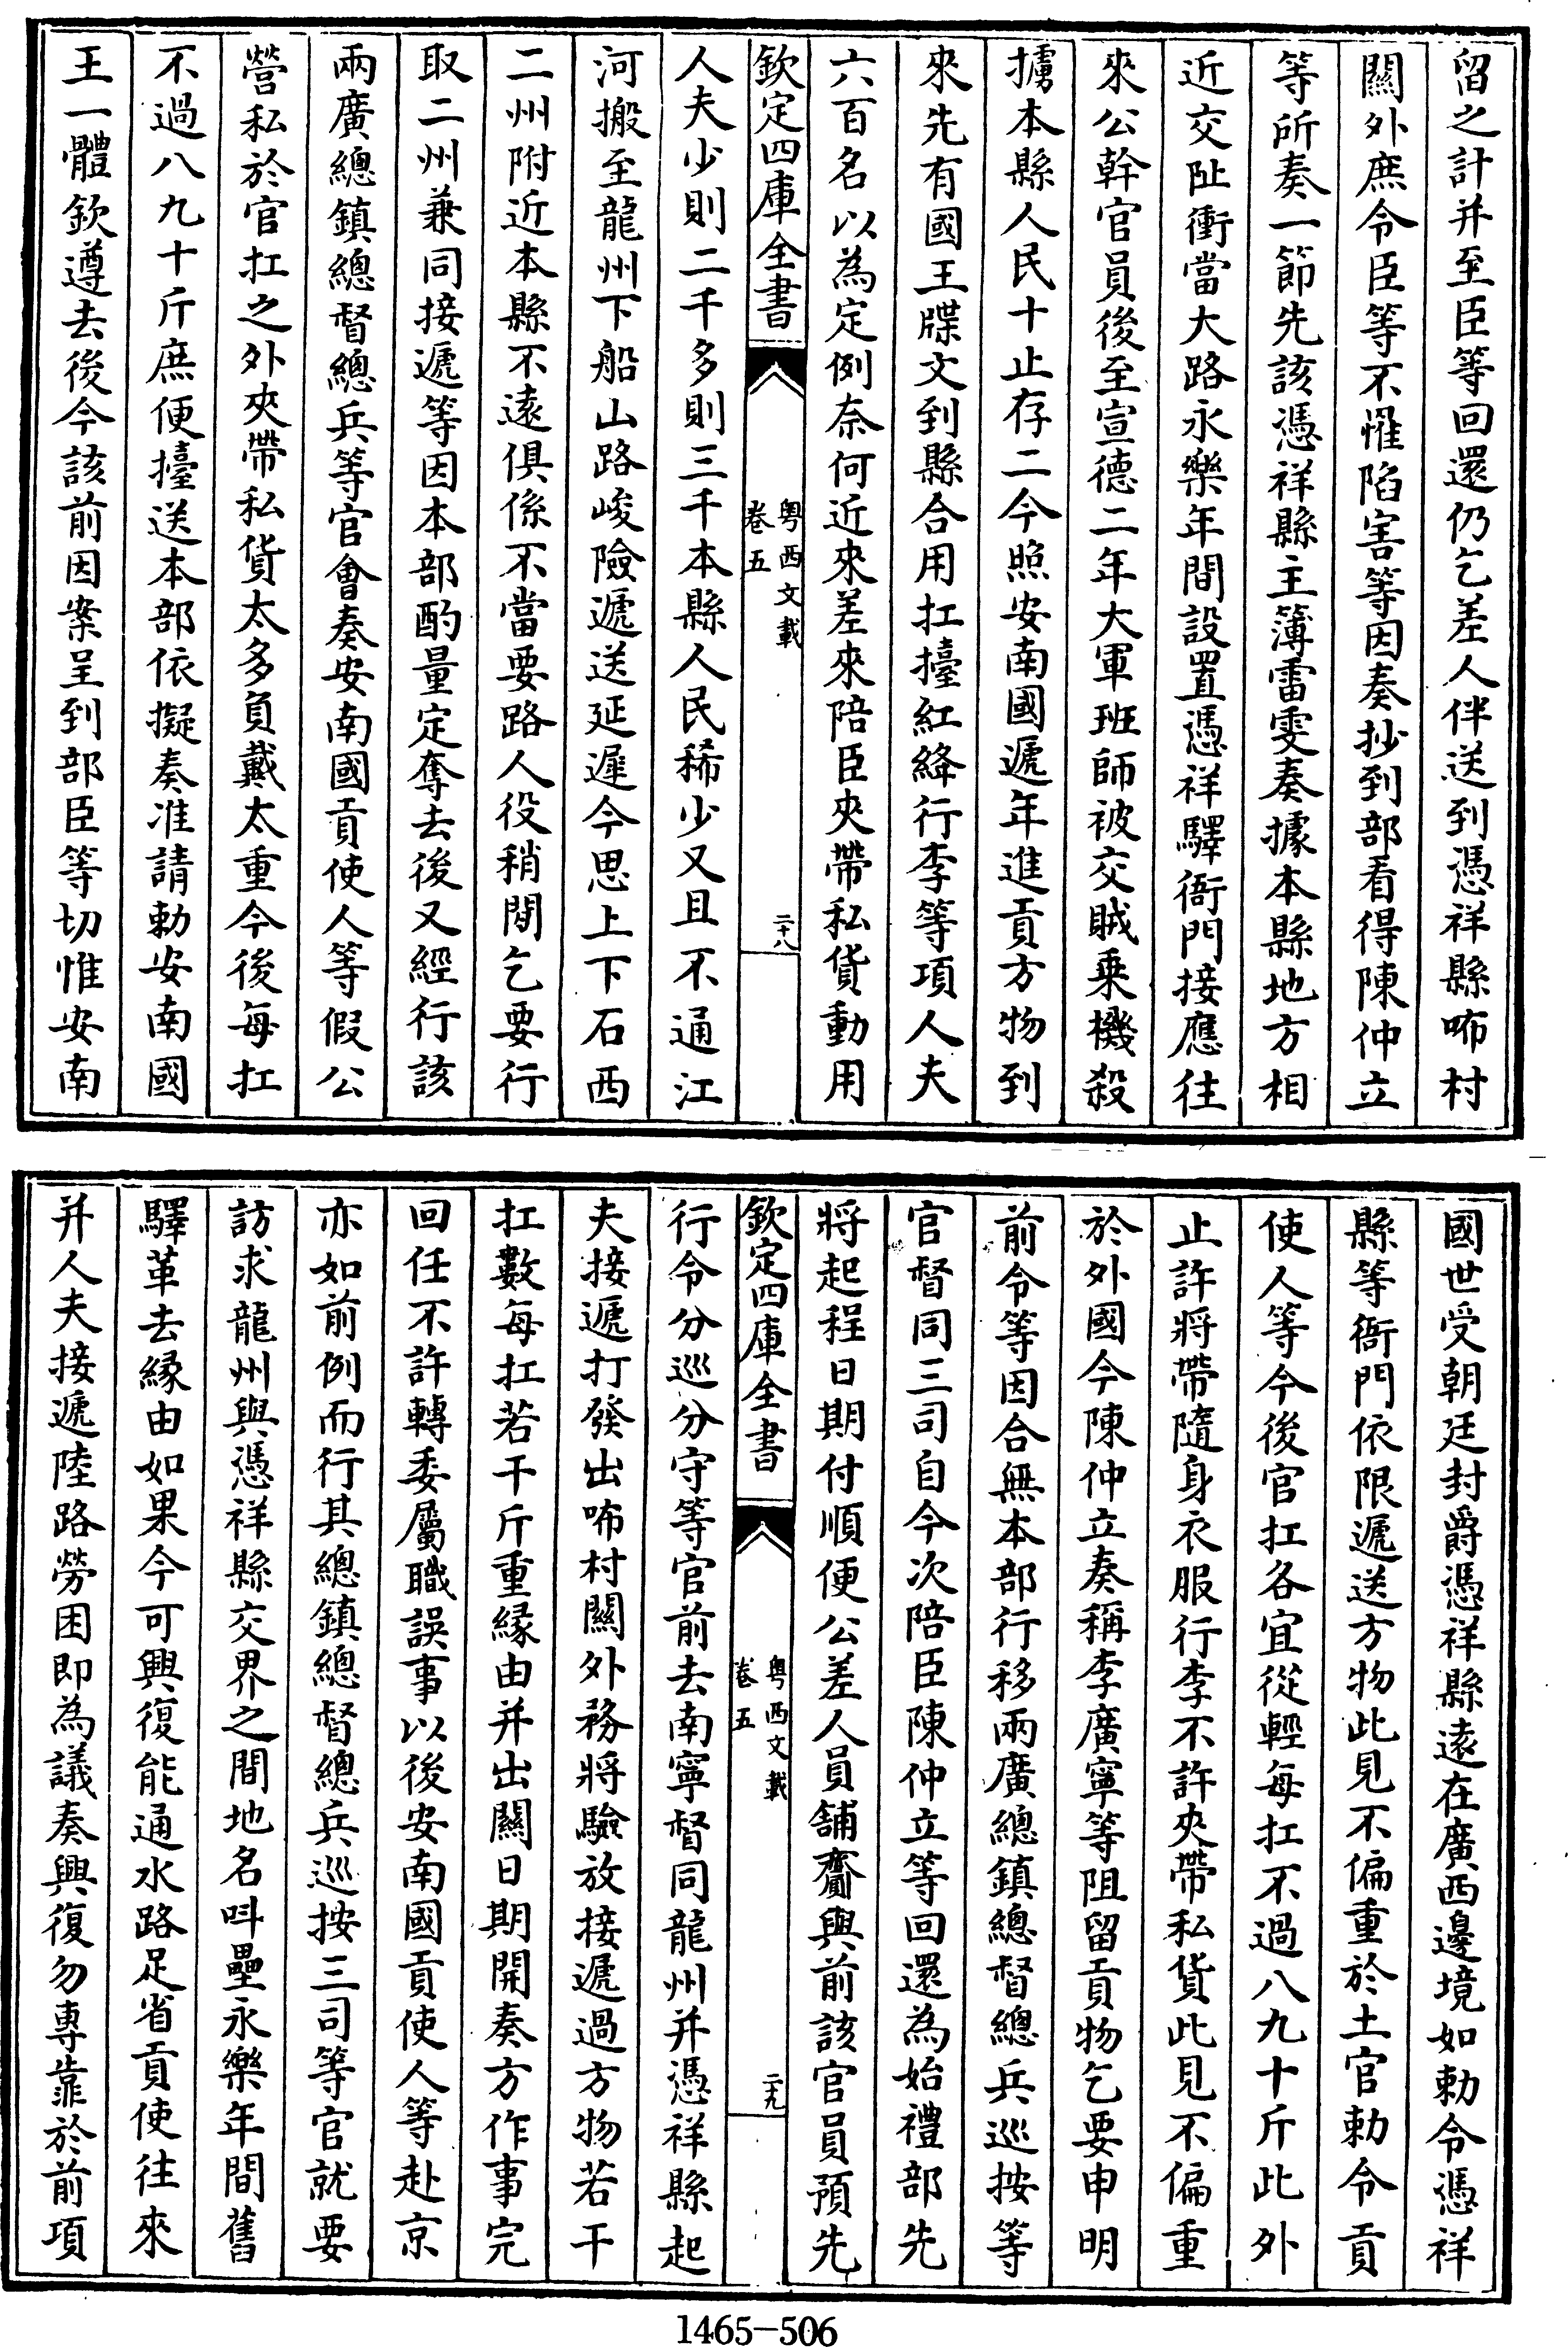 留之計并至臣等回還仍乞差人伴送到憑祥縣㘵村
關外庶令臣等不懼陷害等因奏抄到部看得陳仲立
等所奏一節先該憑祥縣主簿雷雯奏據本縣地方相
近交阯衝當大路永樂年間設置憑祥驛衙門接應往
來公幹官員後至宣德二年大軍班師被交賊乗機殺
擄本縣人民十止存二今照安南國遞年進貢方物到
來先有國王牒文到縣合用扛擡紅絳行李等項人夫
六百名以為定例奈何近來差來陪臣夾帶私貨動用
欽定四庫全書
粤西文載
卷五
二十八
人夫少則二千多則三千本縣人民稀少又且不通江
河搬至龍州下船山路峻險遞送延遲今思上下石西
二州附近本縣不遠俱係不當要路人役稍閒乞要行
取二州兼同接遞等因本部酌量定奪去後又經行該
兩廣總鎮總督總兵等官會奏安南國貢使人等假公
營私於官扛之外夾帶私貨太多負戴太重今後每扛
不過八九十斤庶便擡送本部依擬奏准請勅安南國
王一體欽遵去後今該前因案呈到部臣等切惟安南
國世受朝廷封爵憑祥縣遠在廣西邊境如勅令憑祥
縣等衙門依限遞送方物此見不偏重於土官勅令貢
使人等今後官扛各宜從輕每扛不過八九十斤此外
止許將帶隨身衣服行李不許夾帶私貨此見不偏重
於外國今陳仲立奏稱李廣寧等阻留貢物乞要申明
前令等因合無本部行移兩廣總鎮總督總兵巡按等
官督同三司自今次陪臣陳仲立等回還為始禮部先
將起程日期付順便公差人員舖齎與前該官員預先
欽定四庫全書
粤西文載
卷五
二十九
行令分巡分守等官前去南寧督同龍州并憑祥縣起
夫接遞打發出㘵村關外務將驗放接遞過方物若干
扛數每扛若干斤重緣由并出關日期開奏方作事完
回任不許轉委屬職誤事以後安南國貢使人等赴京
亦如前例而行其總鎮總督總兵巡按三司等官就要
訪求龍州與憑祥縣交界之間地名呌壘永樂年間舊
驛革去緣由如果今可興復能通水路足省貢使往來
并人夫接遞陸路勞困即為議奏興復勿專靠於前項
1465-506